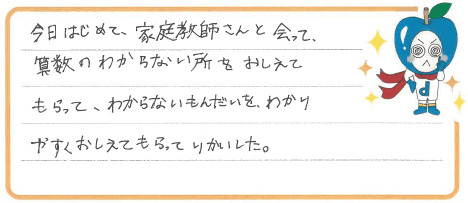 今日はじめて、家庭教師さんと会って、
算数のわからない所をおしえて
もらって、わからないもんだいを、わかり
やすくおしえてもらってりかいした。
d